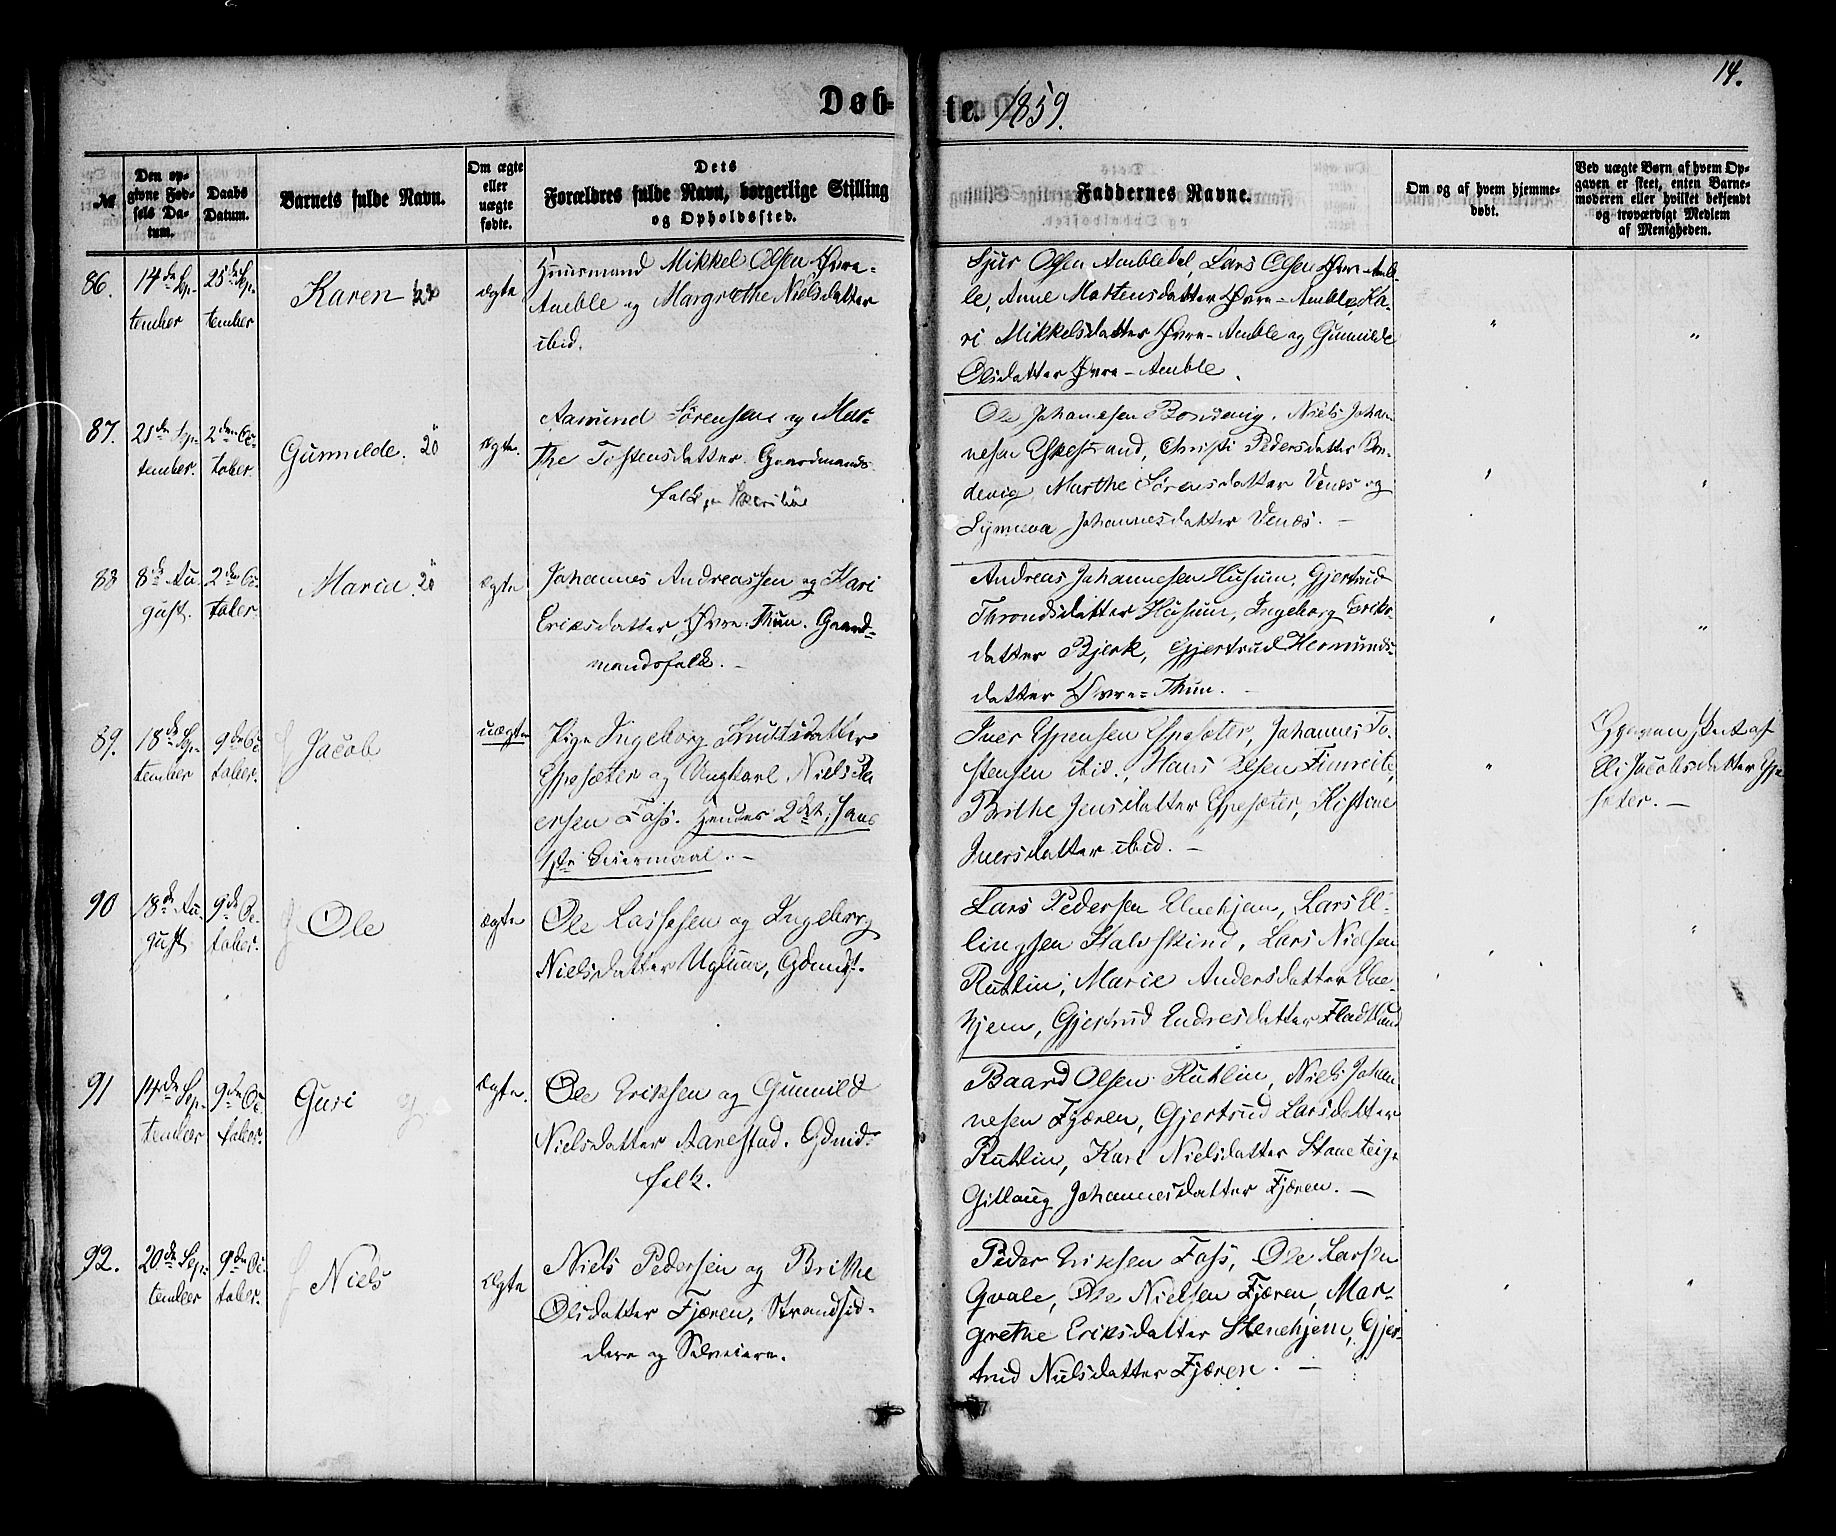 14.
Døb-
te. 1859.
№
Den op-
givne Fød-
sels Da-
tum.
Daabs
Datum.
Barnets fulde Navn.
Om ægte
eller
uægte
fødte.
Dets
Forældres fulde Navn, borgerlige Stilling
og Opholdssted.
Faddernes Navne.
Om og af hvem hjemme-
døbt.
Ved uægte Børn af hvem Op-
gaven er skeet, enten Barne-
moderen eller hvilket bekjendt
og troværdigt Medlem
af Menigheden.
86.
14de Sep-
tember
25de Sep-
tember
Karen
ægte
Huusmand Mikkel Olsen Øvre-
Amble og Margrethe Nielsdatter
ibid.
Sjur Olsen Ambledal, Lars Olsen Øvre-Amb-
le, Anne Mortensdatter Øvre-Amble, Ka-
ri Mikkelsdatter Øvre-Amble og Gunnilde
Olsdatter Øvre-Amble.
"
"
87.
21de Sep-
tember.
2den Oc-
tober.
Gunnilde. 20
ægte.
Aamund Sørensen og Mar-
the Tostensdatter. Gaardmands-
folk
Ole Johannesen Bondevig, Niels Johan-
nesen Eskestrand, Christi Pedersdatter Bon-
devig Marthe Sørensdatter Venæs og
Synneva Johannesdatter Venæs. -
"
"
88
8de Au-
gust.
2den Oc-
tober.
Maria. 20
ægte
Johannes Andreassen og Kari
Eriksdatter Øvre-Thun. Gaard-
mandsfolk. -
Andreas Johannesen Husum, Gjertrud
Throndsdatter Husum, Ingeborg Eriks-
datter Bjerk, Gjertrud Hermunds-
datter Øvre-Thun. -
"
"
89.
18de Sep-
tember
9de Oc-
tober.
Jacob
uægte
Pige Ingeborg Knutsdatter
Espesæter og Ungkarl Niels Pe-
dersen Fass. Hendes 2det, hans
1ste Leiermaal. -
Iver Espensen Espesæter, Johannes To-
stensen ibid., Hans Olsen Fimreite,
Brithe Jensdatter Espesæter, Kistine
Iversdatter ibid. -
"
Opgaven skeet af
Eli Jacobsdatter Espe
sæter. -
90
18de Au-
gust
9de Oc-
tober.
Ole
ægte
Ole Lassesen og Ingeborg
Nielsdatter Uglum, Gdmdf.
Lars Pedersen Elnehjem, Lars El-
lingsen Kalvskind, Lars Nielsen
Rutlin, Marie Andersdatter Elne-
hjem, Gjertrud Endresdatter Fladtlund
"
"
91
14de Sep-
tember
9de Oc-
tober.
Guri
ægte.
Ole Eriksen og Gunnild
Nielsdatter Aarestad. Gdmds-
folk.
Baard Olsen Rutlin, Niels Johan-
nesen Fjæren, Gjertrud Larsdatter
Rutlin, Kari Nielsdatter Staaeteig,
Gitlaug Johannesdatter Fjæren. -
92.
20de Sep-
tember
9de Oc-
tober.
Niels
ægte
Niels Pedersen og Brithe
Olsdatter Fjæren, Strandsid-
dere og Selveiere.
Peder Eriksen Fass, Ole Larsen
Qvale, Ole Nielsen Fjæren, Mar-
grethe Eriksdatter Stenehjem, Gjer-
trud Nielsdatter Fjæren. -
"
"